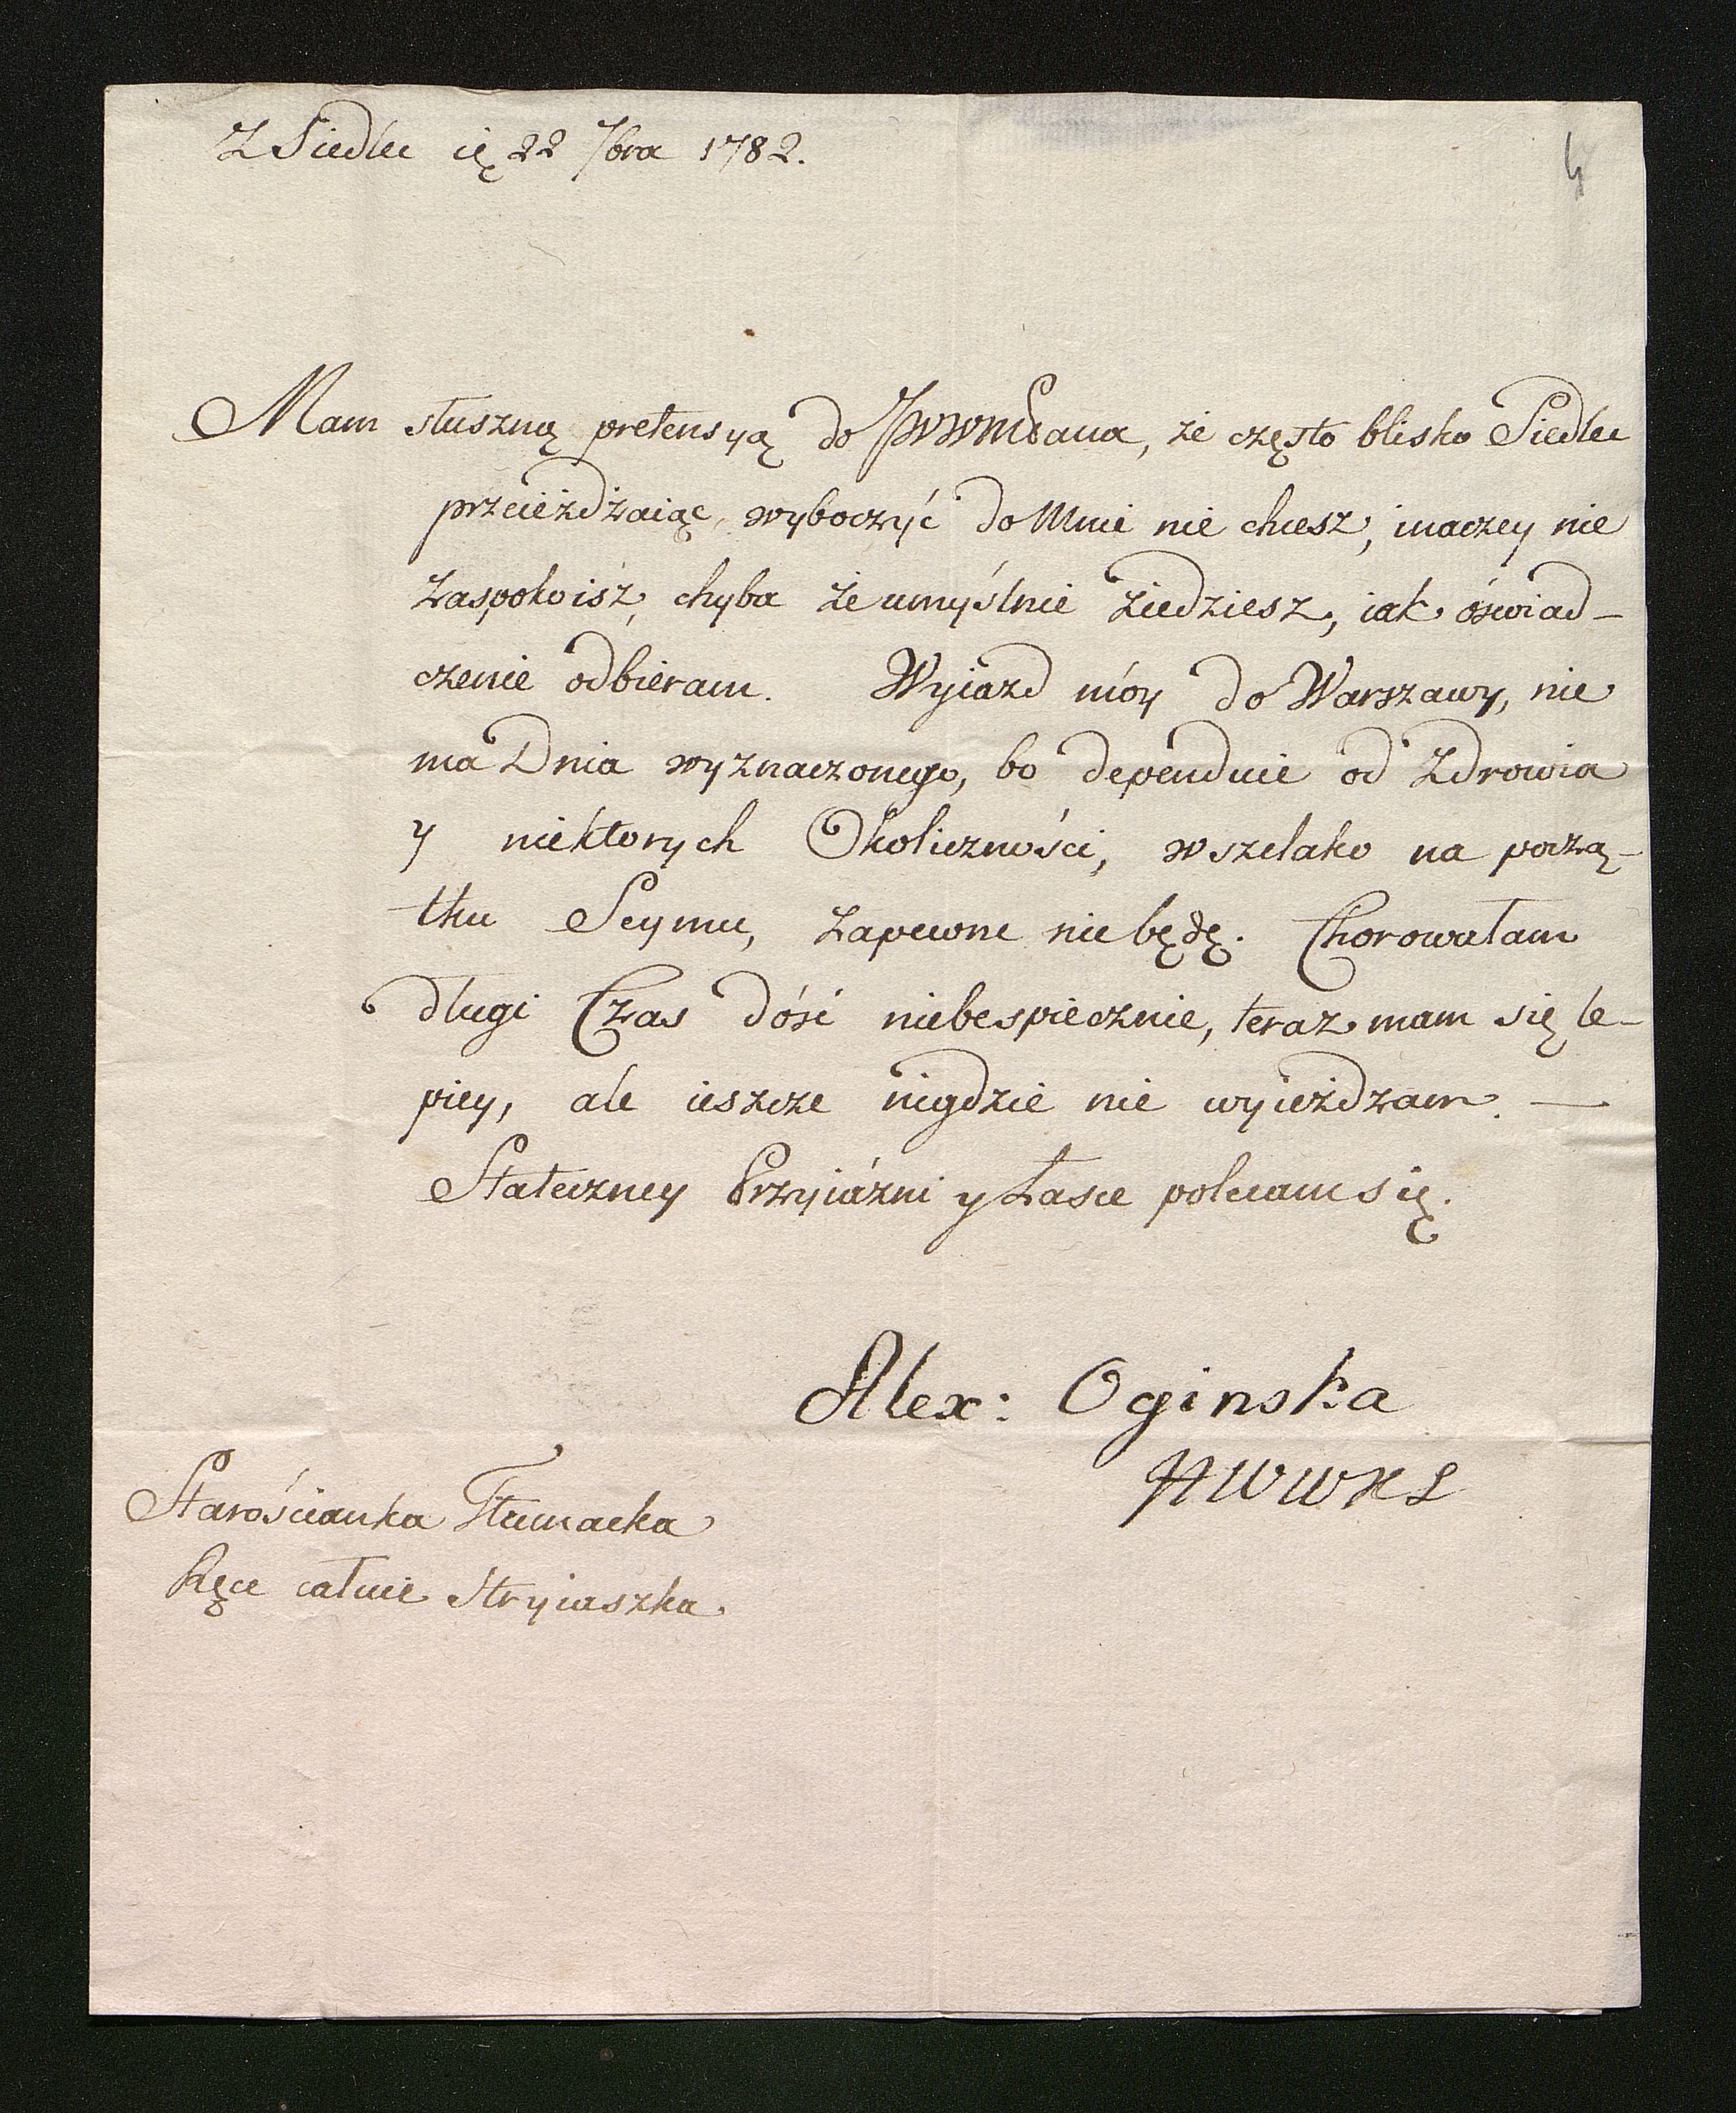 Z Siedlec ię 22 7bra 1782.
4
Mam słuszną pretensyą do JWWMPana, że często blisko Siedlec
przeieżdżaiąc, wyboczyć do Mnie nie chcesz, inaczey nie
zaspokoisz, chyba że umyślnie ziedziesz, iak oświad-
czenie odbieram. Wyiazd móy do Warszawy, nie
ma Dnia wyznaczonego, bo dependuie od Zdrowia
y niektorych Okoliczności, wszelako na począ-
tku Seymu, zapewne nie będę. Chorowałam
długi Czas dość niebespiecznie, teraz mam się le-
piey, ale ieszcze nigdzie nie wyieżdzam. —
Stateczney Przyiáźni y Łasce polecam się.
Alex: Oginska
HWWXL
Starościanka Tłumacka
Ręce całuie Stryiaszka.